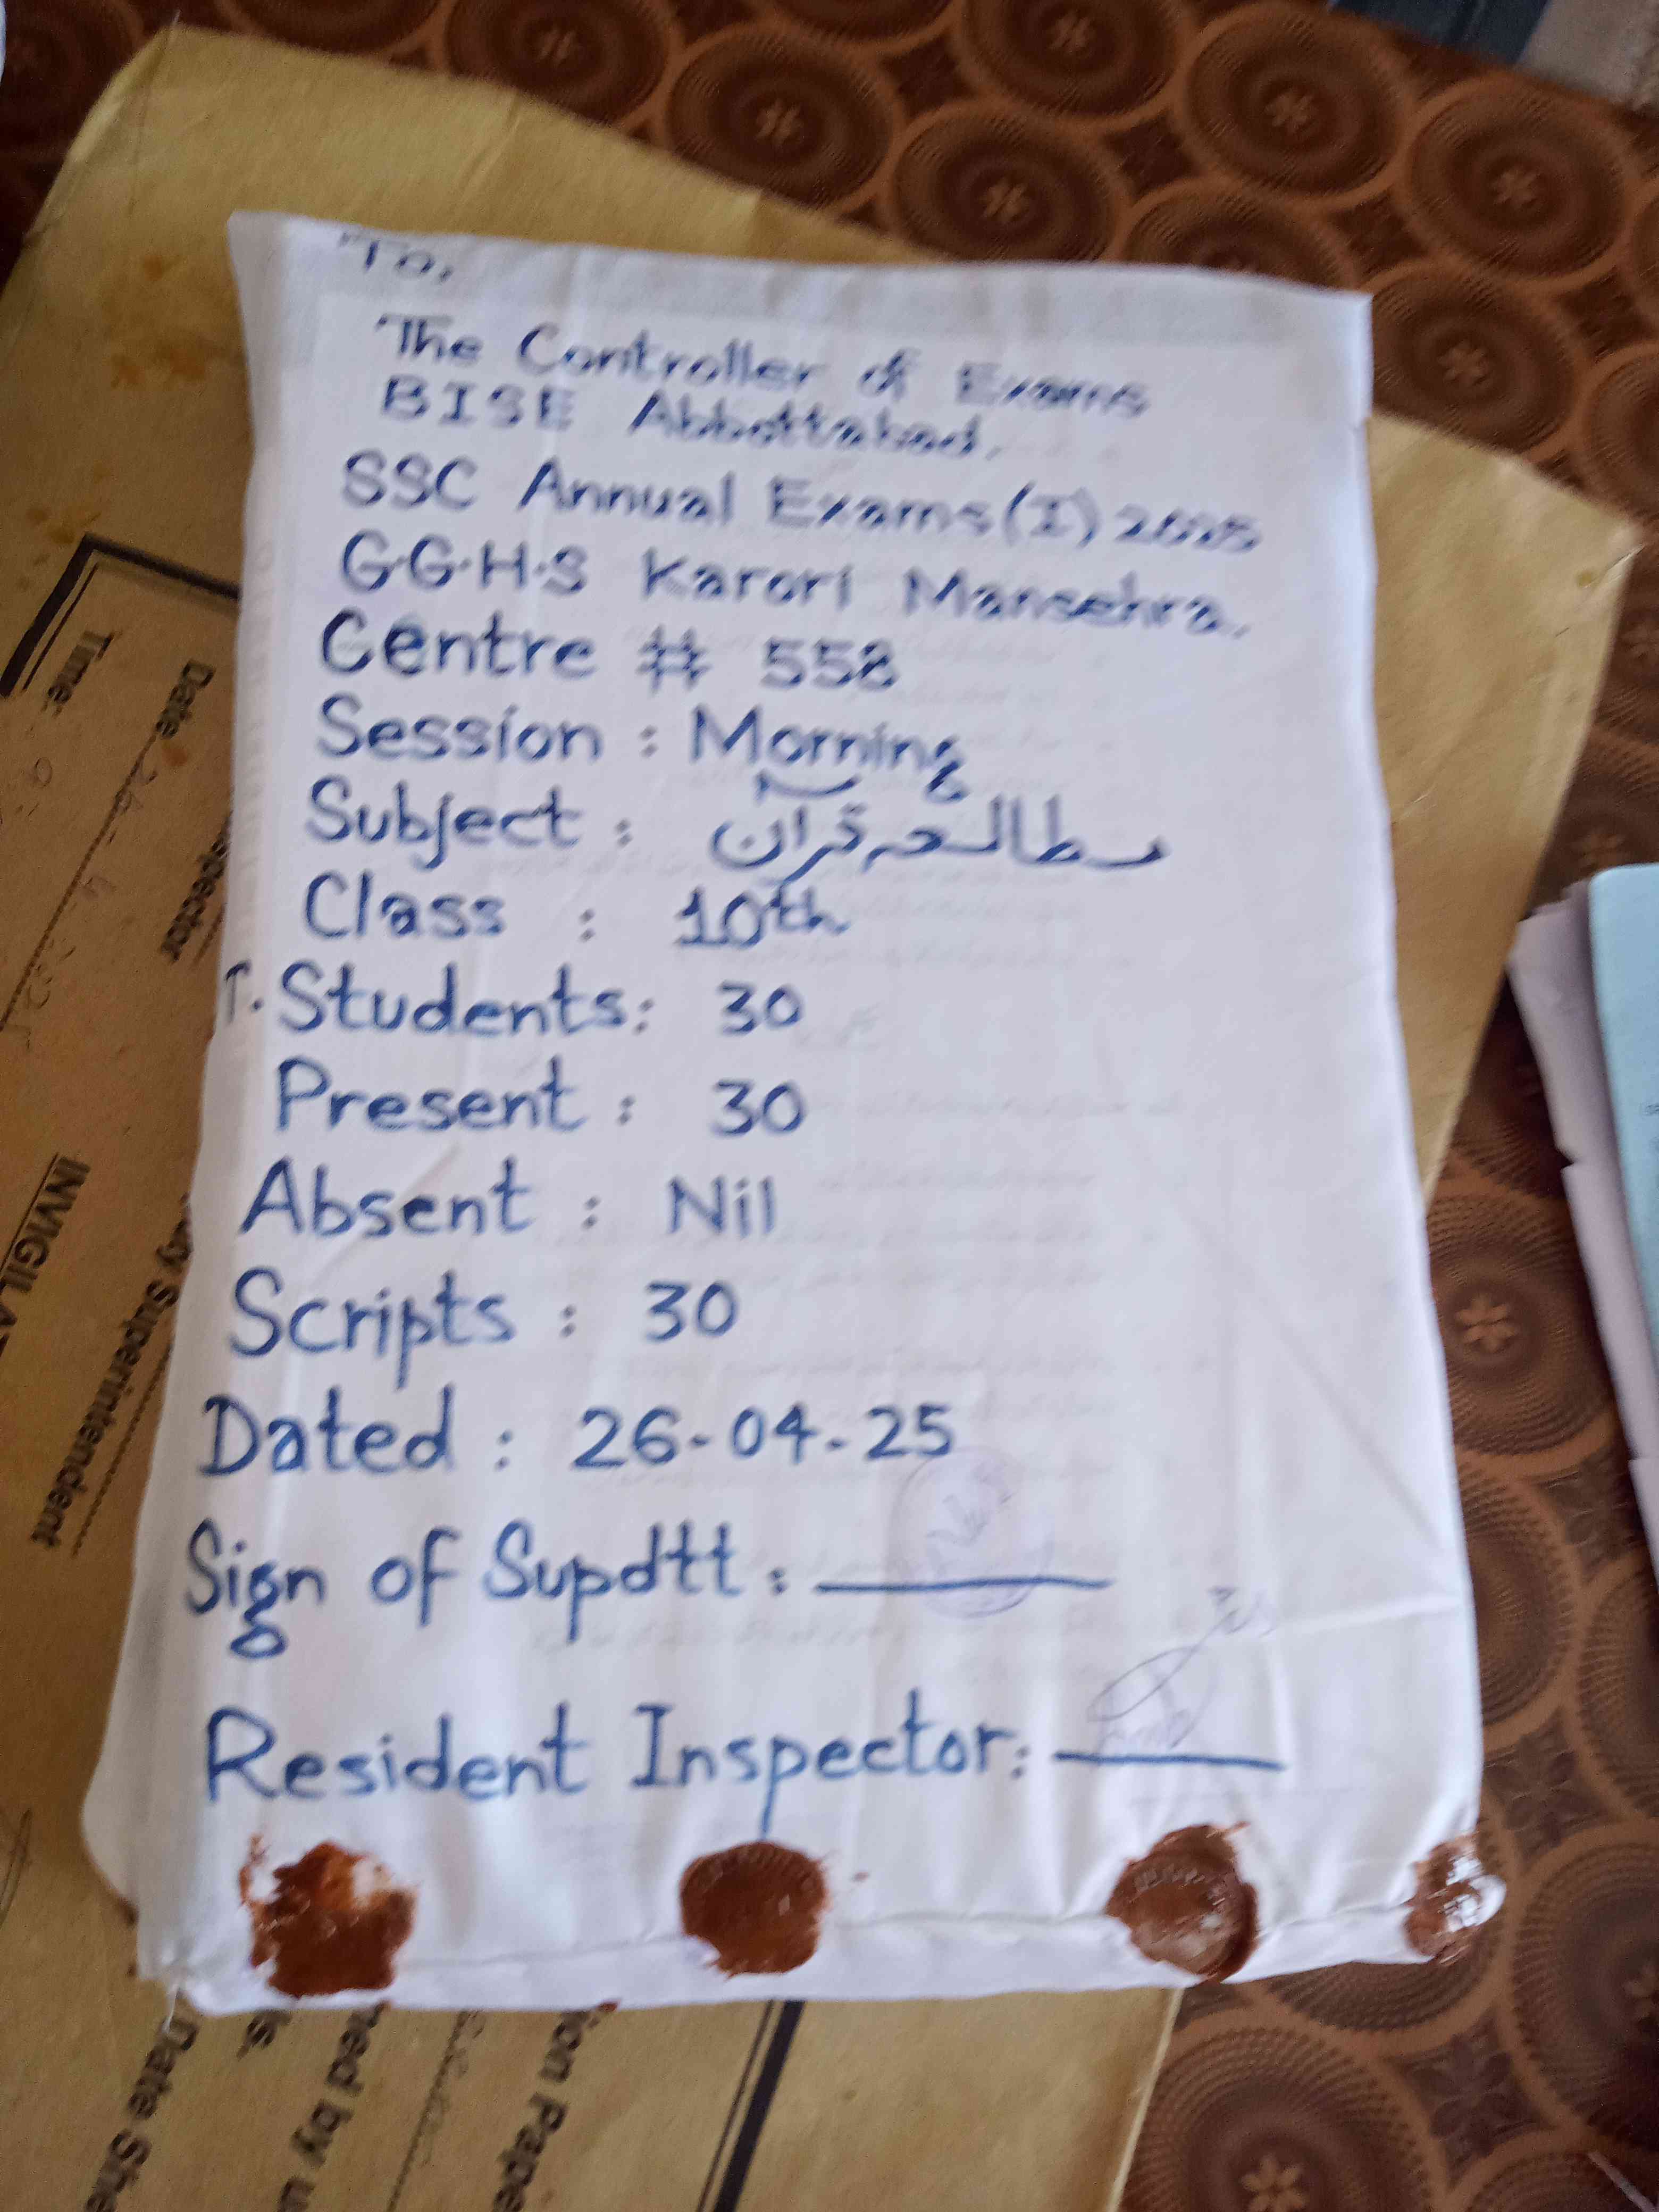 To,
The Controller of Exams
BISE Abbottabad.
SSC Annual Exams (I) 2025
G.G.H.S Karori Mansehra.
Centre # 558
Session : Morning
Subject : مطالعہ قرآن
Class : 10th
T. Students: 30
Present : 30
Absent : Nil
Scripts : 30
Dated : 26-04-25
Sign of Supdtt :
Resident Inspector:
Date
Time:
Superintendent
Paper
ned by
Date She